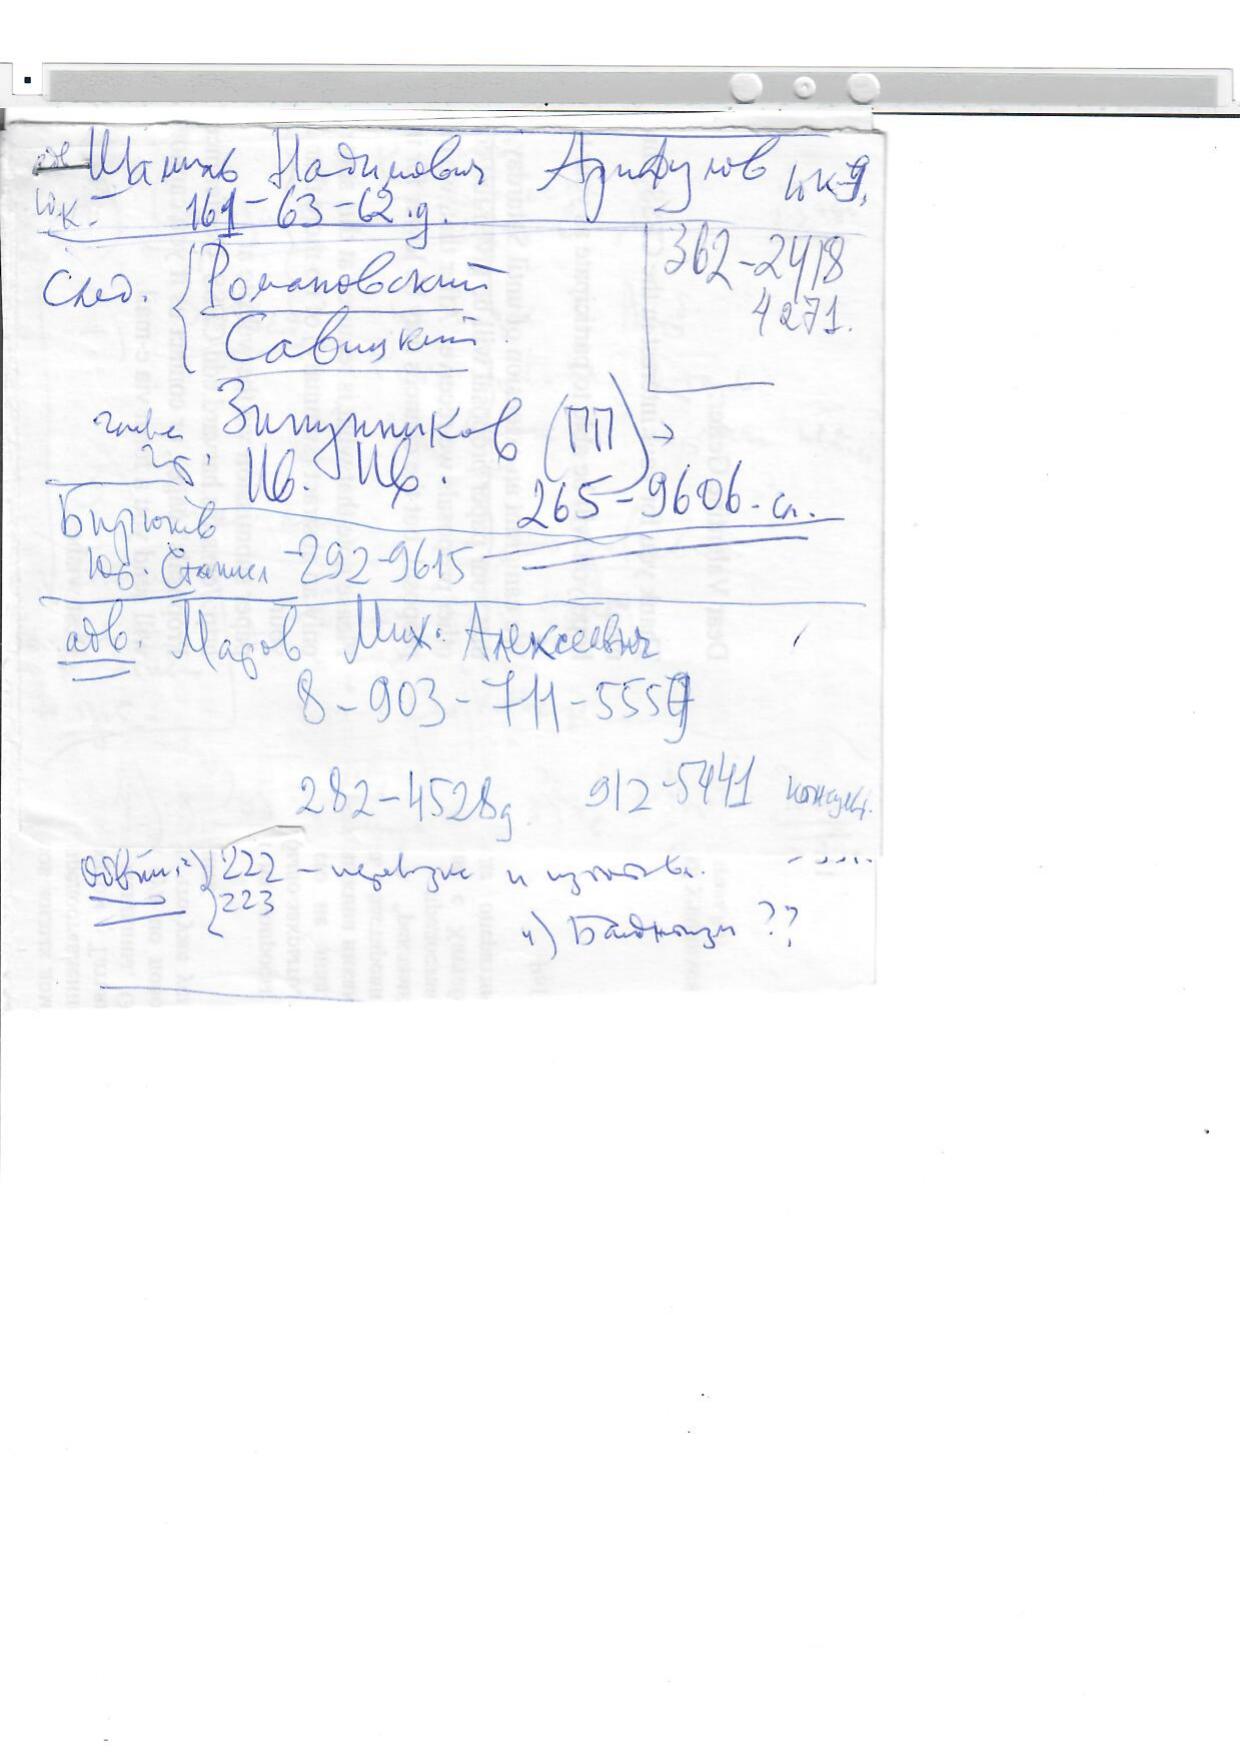 Шамиль Надимович Арифулов ЮК-9,
ЮК- 161-63-62.д.
След. Романовский
Савицкий
362-2418
4271.
Зипунников (ПП) →
Ив. Ив.
265-9606-сл.
Бирюков
Юр. Станисл -292-9615
адв. Маров Мих. Алексеевич
8-903-711-555
282-4528д 912-5441
222 - перевозка и
223
4) Бандитизм ??